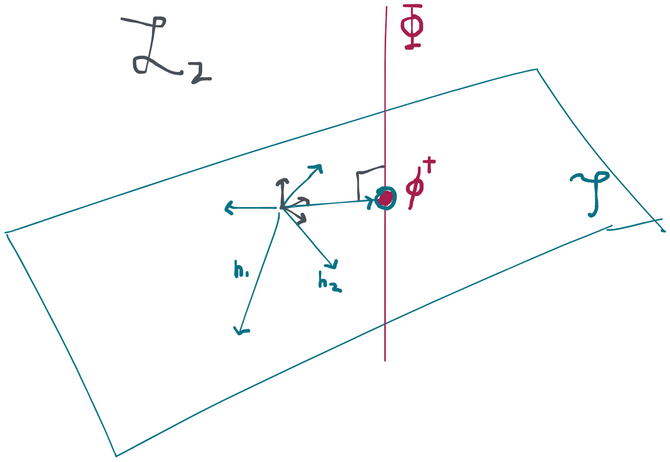 ℒ₂
Φ
ϕ†
𝒯
h₁
h₂